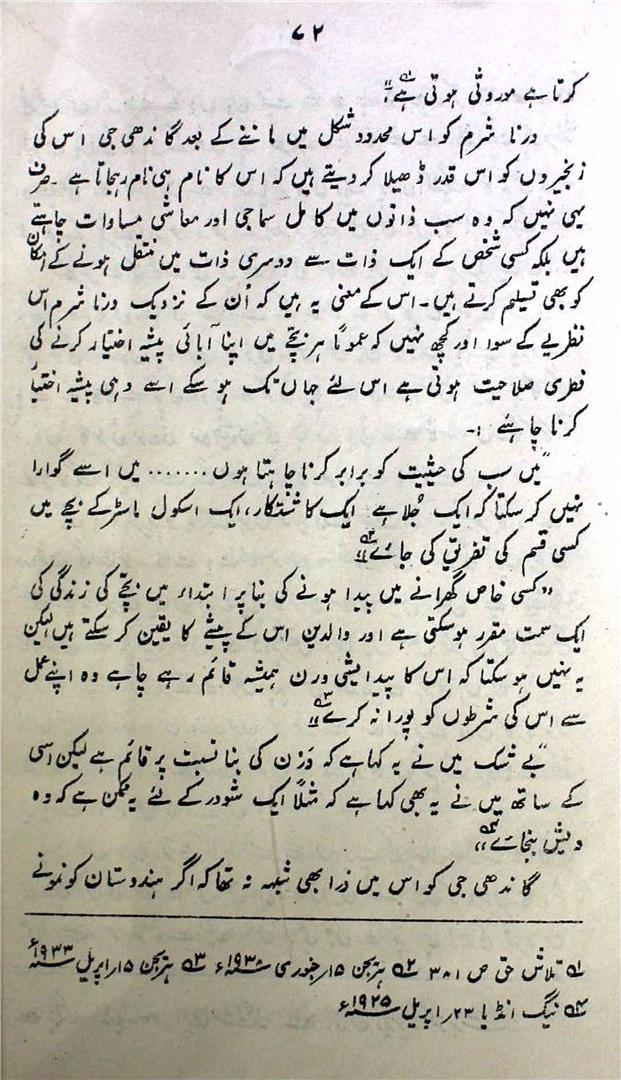 ۷۲
کرتا ہے موروثی ہوتی ہے؂۱"
ورنا شرم کو اس محدود شکل میں ماننے کے بعد گاندھی جی اس کی
زنجیروں کو اس قدر ڈھیلا کر دیتے ہیں کہ اس کا نام ہی نام رہجاتا ہے ۔ صرف
یہی نہیں کہ وہ سب ذاتوں میں کامل سماجی اور معاشی مساوات چاہتے
ہیں بلکہ کسی شخص کے ایک ذات سے دوسری ذات میں منتقل ہونے کے امکان
کو بھی تسلیم کرتے ہیں۔ اس کے معنی یہ ہیں کہ اُن کے نزدیک ورنا شرم اس
نظریے کے سوا اور کچھ نہیں کہ عموماً ہر بچّے میں اپنا آبائی پیشہ اختیار کرنے کی
فطری صلاحیت ہوتی ہے اس لئے جہاں تک ہو سکے اسے وہی پیشہ اختیا
کرنا چاہئے :۔
"میں سب کی حیثیت کو برابر کرنا چاہتا ہوں ....... میں اسے گوارا
نہیں کر سکتا کہ ایک جُلاہے ایک کاشتکار، ایک اسکول ماسٹر کے بچے میں
کسی قسم کی تفریق کی جائے؂۲"
"کسی خاص گھرانے میں پیدا ہونے کی بنا پر ابتداء میں بچّے کی زندگی کی
ایک سمت مقرر ہو سکتی ہے اور والدین اس کے پیشے کا یقین کر سکتے ہیں لیکن
یہ نہیں ہو سکتا کہ اس کا پیدایشی ورن ہمیشہ قائم رہے چاہے وہ اپنے عمل
سے اس کی شرطوں کو پورا نہ کرے؂۳"
"بے شک میں نے یہ کہا ہے کہ وَرن کی بنا نسبت پر قائم ہے لیکن اسی
کے ساتھ میں نے یہ بھی کہا ہے کہ مثلاً ایک شودر کے لئے یہ ممکن ہے کہ وہ
ویش بنجائے؂۴"
گاندھی جی کو اس میں ذرا بھی شبہہ نہ تھا کہ اگر ہندوستان کو نمونے
؂۱ تلاش حق ص ۳۸۱ ؂۲ ہریجن ۱۵/جنوری ۱۹۳۸ء ؂۳ ہریجن ۱۵/اپریل ۱۹۳۳ء
؂۴ ینگ انڈیا ۲۳/اپریل ۱۹۲۵ء